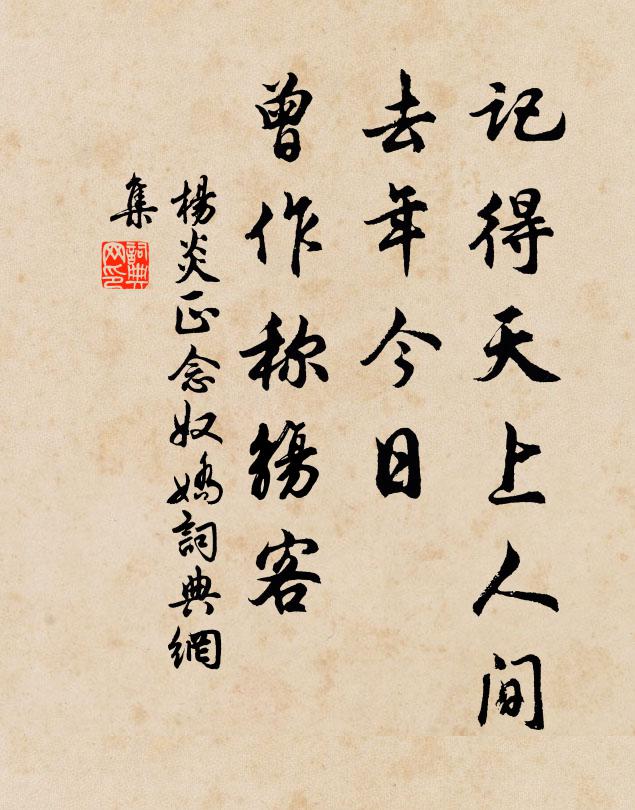 记得天上人间
去年今日
曾作称觞客
楊炎正念奴嬌詞典網
集
詞典
网印